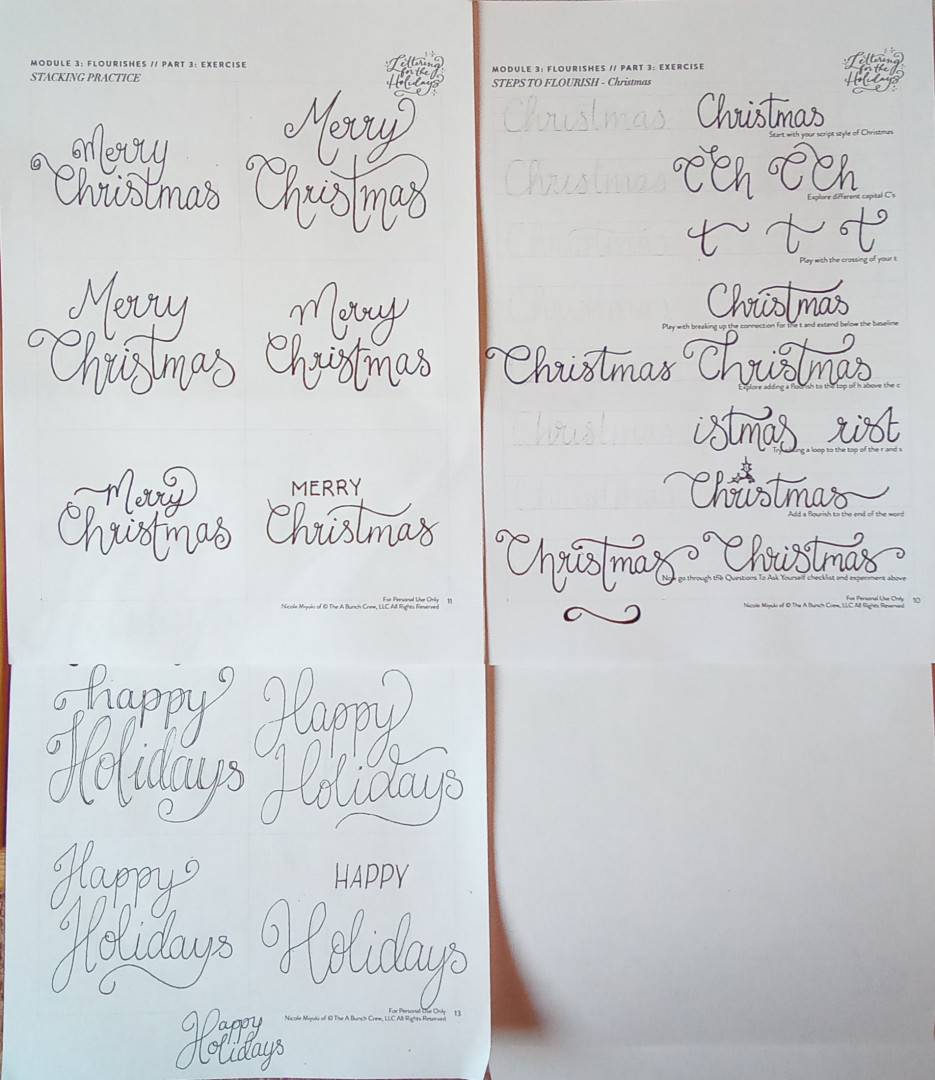 MODULE 3: FLOURISHES // PART 3: EXERCISE
STACKING PRACTICE
Lettering
for the
Holidays
Merry
Christmas
Merry
Christmas
Merry
Christmas
Merry
Christmas
Merry
Christmas
MERRY
Christmas
For Personal Use Only
Nicole Miyuki of © The A Bunch Crew, LLC All Rights Reserved
11
MODULE 3: FLOURISHES // PART 3: EXERCISE
STEPS TO FLOURISH - Christmas
Lettering
for the
Holidays
Christmas Christmas
Start with your script style of Christmas
Christmas C Ch C Ch
Explore different capital C's
t t t
Play with the crossing of your t
Christmas
Play with breaking up the connection for the t and extend below the baseline
Christmas Christmas
Explore adding a flourish to the top of h above the c
Christmas istmas rist
Try adding a loop to the top of the r and s
Christmas
Add a flourish to the end of the word
Christmas Christmas
Now go through the Questions To Ask Yourself checklist and experiment above
For Personal Use Only
Nicole Miyuki of © The A Bunch Crew, LLC All Rights Reserved
10
happy
Holidays
Happy
Holidays
Happy
Holidays
HAPPY
Holidays
For Personal Use Only
Nicole Miyuki of © The A Bunch Crew, LLC All Rights Reserved
13
Happy
Holidays